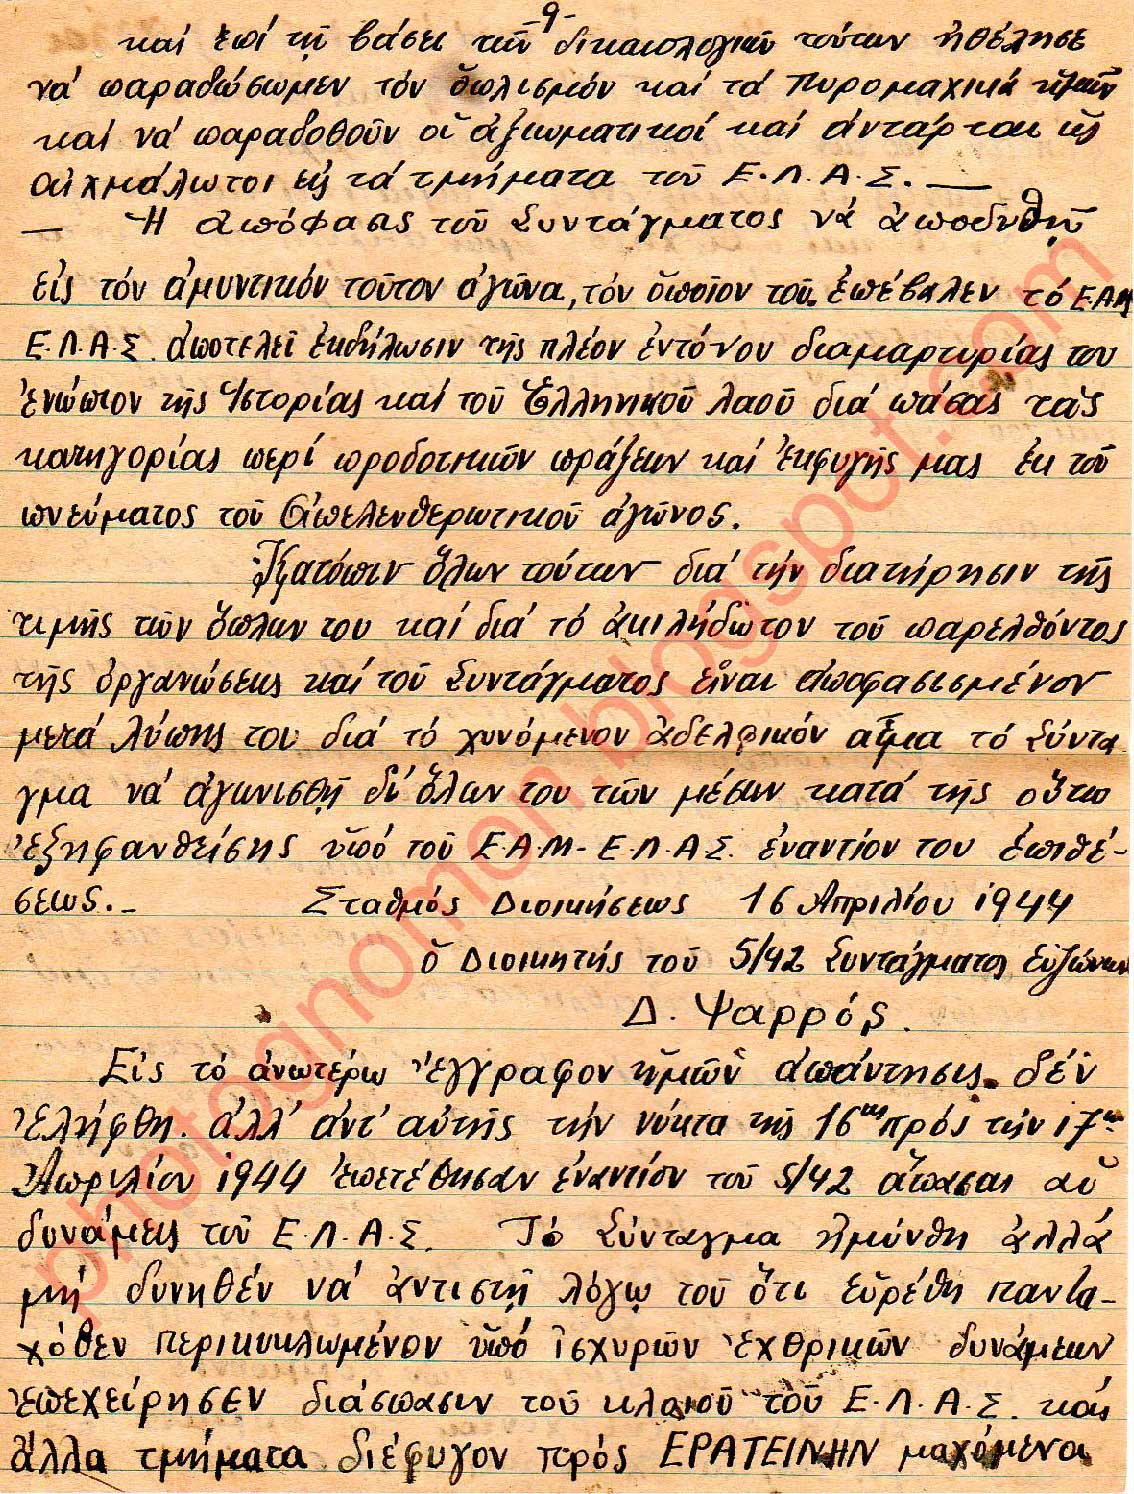 -9-
καί ἐπί τῇ βάσει τῶν δικαιολογιῶν τούτων ἠθέλησε
νά παραδώσωμεν τόν ὁπλισμόν καί τά πυρομαχικά ἡμῶν
καί νά παραδοθοῦν οἱ ἀξιωματικοί καί ἀντάρται ὡς
αἰχμάλωτοι εἰς τά τμήματα τοῦ Ε.Λ.Α.Σ. —
— Ἡ ἀπόφασις τοῦ Συντάγματος νά ἀποδυθῇ
εἰς τόν ἀμυντικόν τοῦτον ἀγῶνα, τόν ὁποῖον τοῦ ἐπέβαλεν τό ΕΑΜ
Ε.Λ.Α.Σ. ἀποτελεῖ ἐκδήλωσιν τῆς πλέον ἐντόνου διαμαρτυρίας του
ἐνώπιον τῆς Ἱστορίας καί τοῦ Ἑλληνικοῦ λαοῦ διά πάσας τάς
κατηγορίας περί προδοτικῶν πράξεων καί ἐκφυγῆς μας ἐκ τοῦ
πνεύματος τοῦ Ἀπελευθερωτικοῦ ἀγῶνος.
Κατόπιν ὅλων τούτων διά τήν διατήρησιν τῆς
τιμῆς τῶν ὅπλων του καί διά τό ἀκιλήδωτον τοῦ παρελθόντος
τῆς ὀργανώσεως καί τοῦ Συντάγματος εἶναι ἀποφασισμένον
μετά λύπης του διά τό χυνόμενον ἀδελφικόν αἷμα τό Σύντα-
γμα νά ἀγωνισθῇ δι' ὅλων του τῶν μέσων κατά τῆς οὕτω
ἐξηφανθείσης ὑπό τοῦ Ε.Α.Μ-Ε.Λ.Α.Σ. ἐναντίον του ἐπιθέ-
σεως.- Σταθμός Διοικήσεως 16 Ἀπριλίου 1944
ὁ Διοικητής τοῦ 5/42 Συντάγματος Εὐζώνων
Δ. Ψαρρός.
Εἰς τό ἀνωτέρω ἔγγραφον ἡμῶν ἀπάντησις δέν
ἐλήφθη. ἀλλ' ἀντ' αὐτῆς τήν νύκτα τῆς 16ης πρός τήν 17ην
Ἀπριλίου 1944 ἐπετέθησαν ἐναντίον τοῦ 5/42 ἅπασαι αἱ
δυνάμεις τοῦ Ε.Λ.Α.Σ. Τό Σύνταγμα ἠμύνθη ἀλλά
μή δυνηθέν νά ἀντιστῇ λόγῳ τοῦ ὅτι εὑρέθη παντα-
χόθεν περικυκλωμένον ὑπό ἰσχυρῶν ἐχθρικῶν δυνάμεων
ἐπεχείρησεν διάσπασιν τοῦ κλοιοῦ τοῦ Ε.Λ.Α.Σ. καί
ἄλλα τμήματα διέφυγον πρός ΕΡΑΤΕΙΝΗΝ μαχόμενα
photognomon.blogspot.com